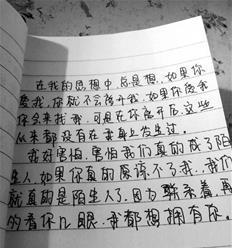 在我的思想中总是想,如果你
爱我,你就不会离开我,如果你爱我
你会来找我,可是在你离开后,这些
从来都没有在我身上发生过.
我好害怕,害怕我们真的成了陌
生人,如果你真的 不了我,我们
就真的是陌生人了,因为 着,再
的看你几眼,我都想拥有你。